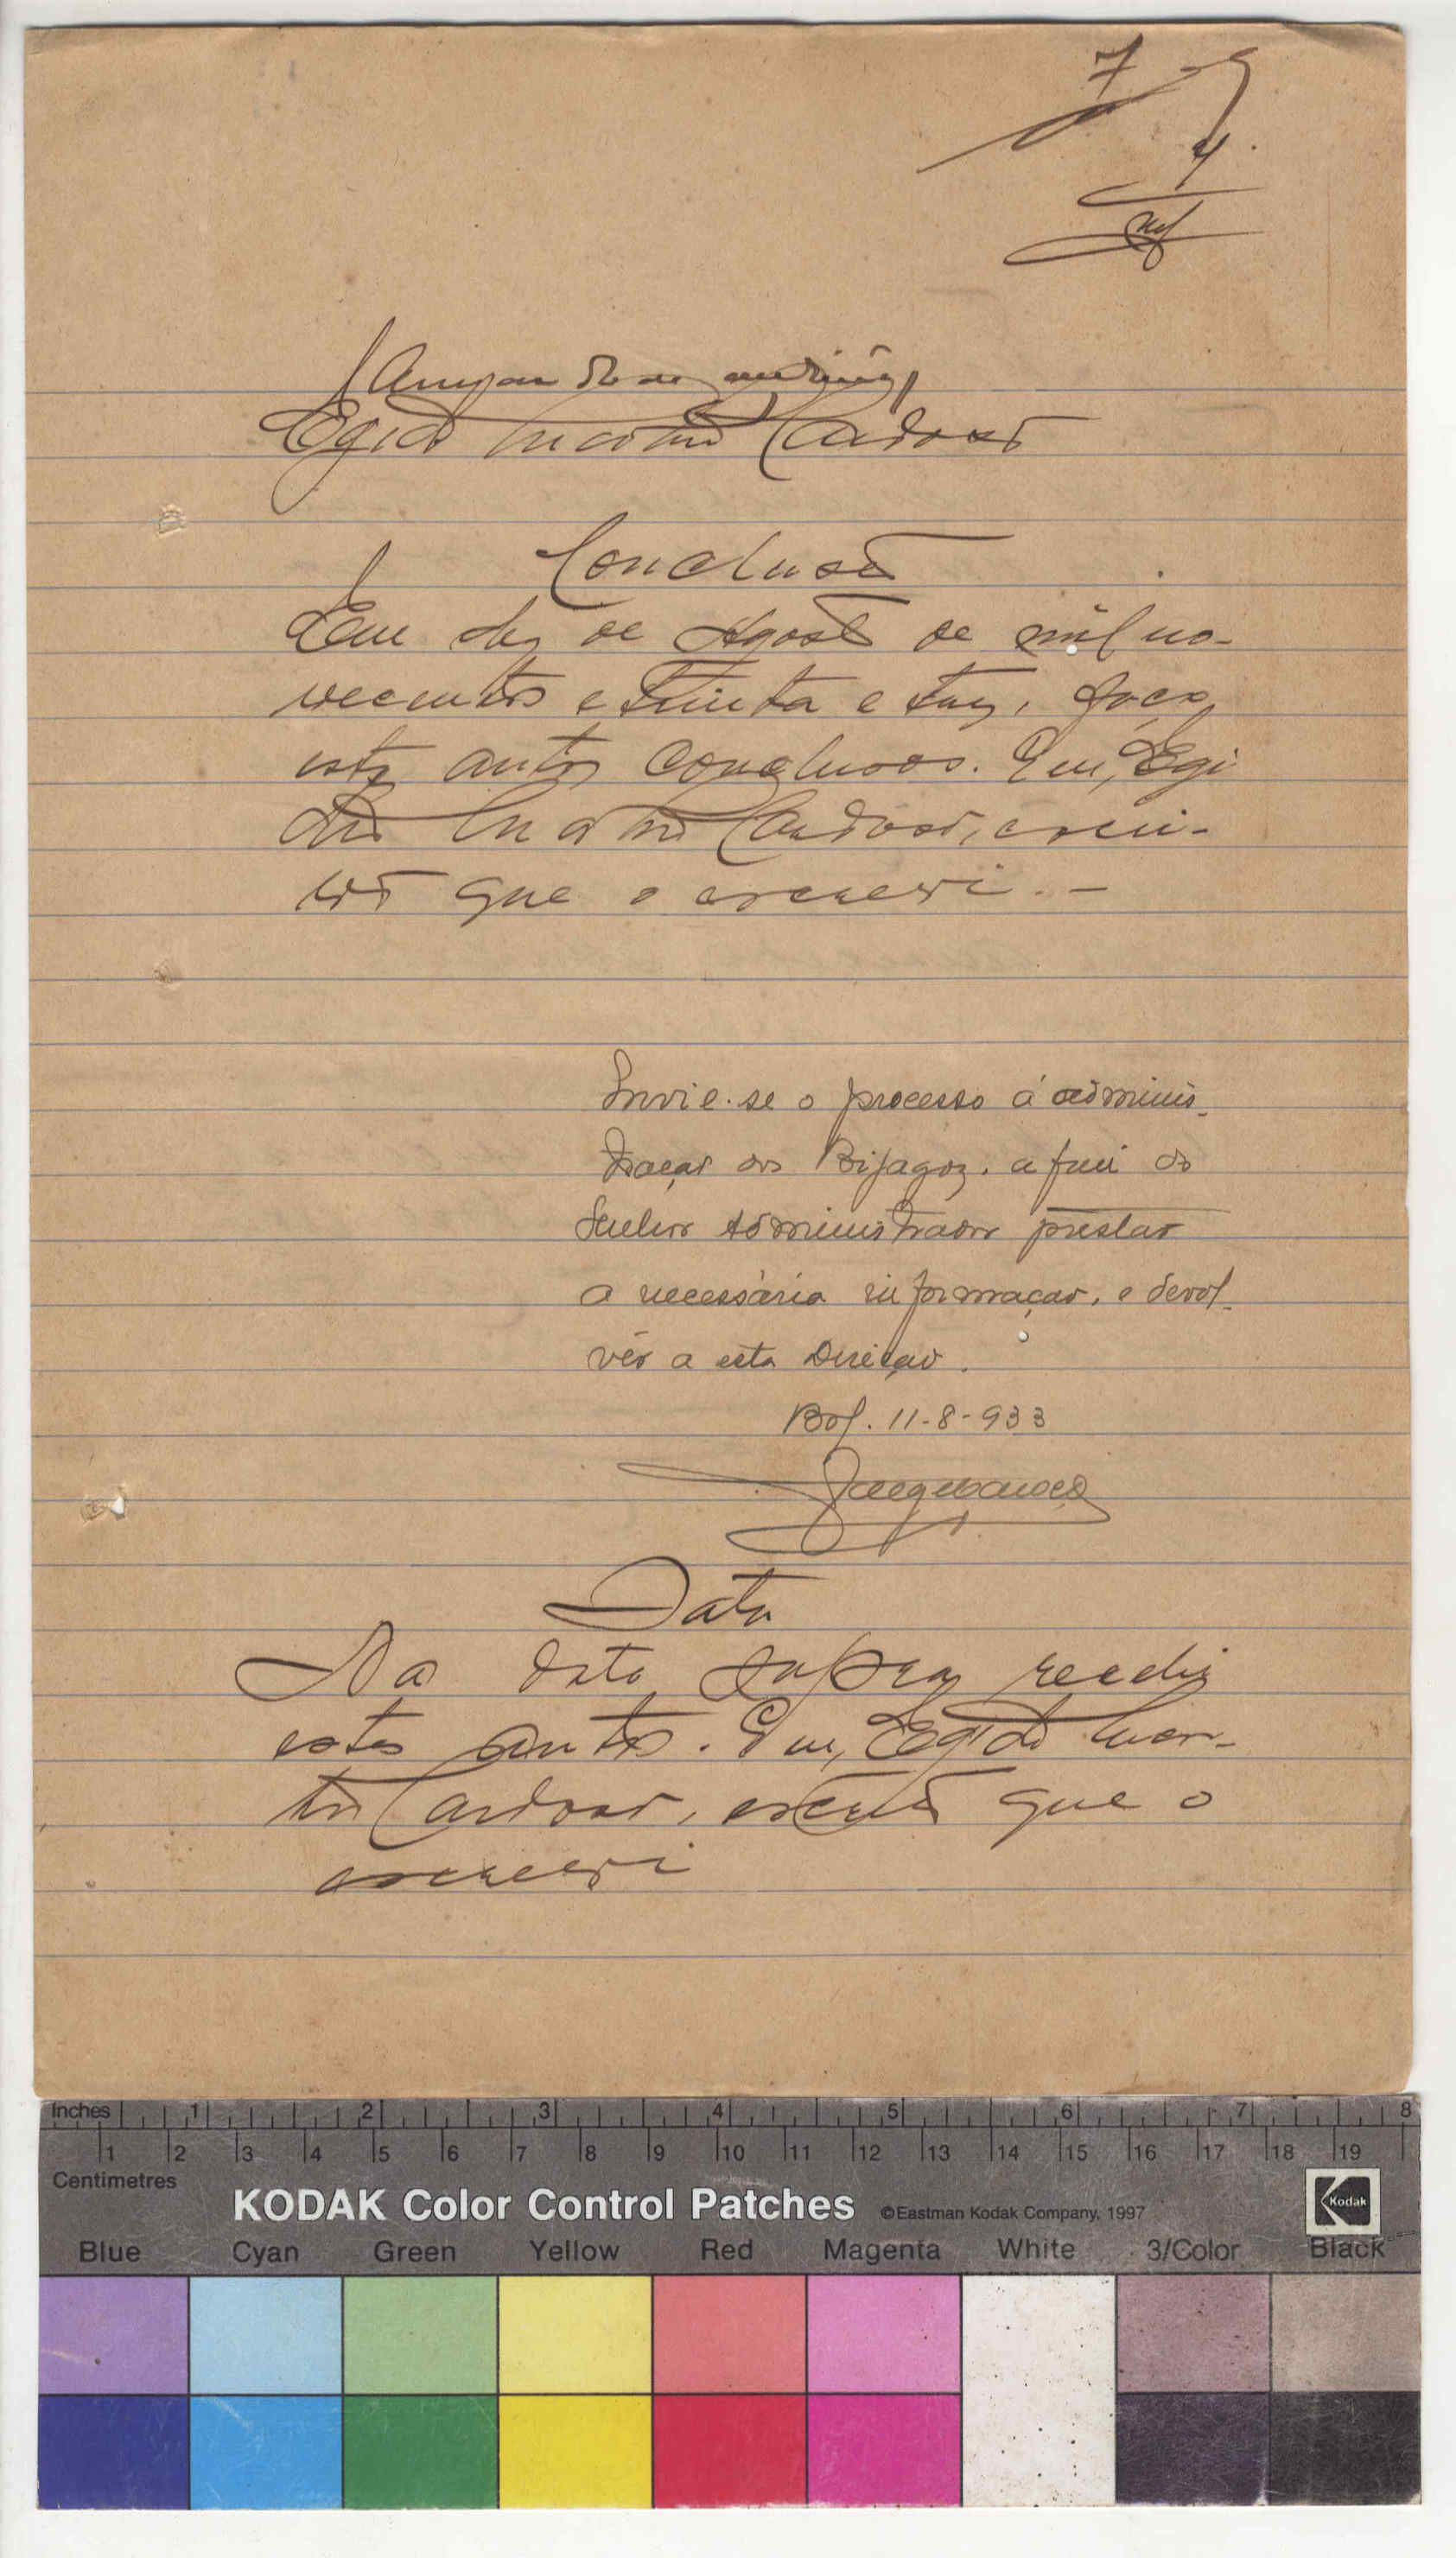 7
4.
Egidio Cardoso
Conclusão
Em dez de Agosto de mil no-
vecentos e trinta e tres, faço
estes autos conclusos. Eu, Egi
dio Cardoso, escri-
vão que o escrevi. -
Envie-se o processo á adminis-
tração dos Bijagoz, a fim do
Senhor Administrador prestar
a necessária informação, e devol-
vêr a esta Direcção.
Bol. 11-8-933
Data
Na data supra recebi
estes autos. Eu, Egidio
Cardoso, escrivão que o
escrevi
Inches 1 2 3 4 5 6 7 8
1 2 3 4 5 6 7 8 9 10 11 12 13 14 15 16 17 18 19
Centimetres
KODAK Color Control Patches ©Eastman Kodak Company, 1997 Kodak
Blue Cyan Green Yellow Red Magenta White 3/Color Black